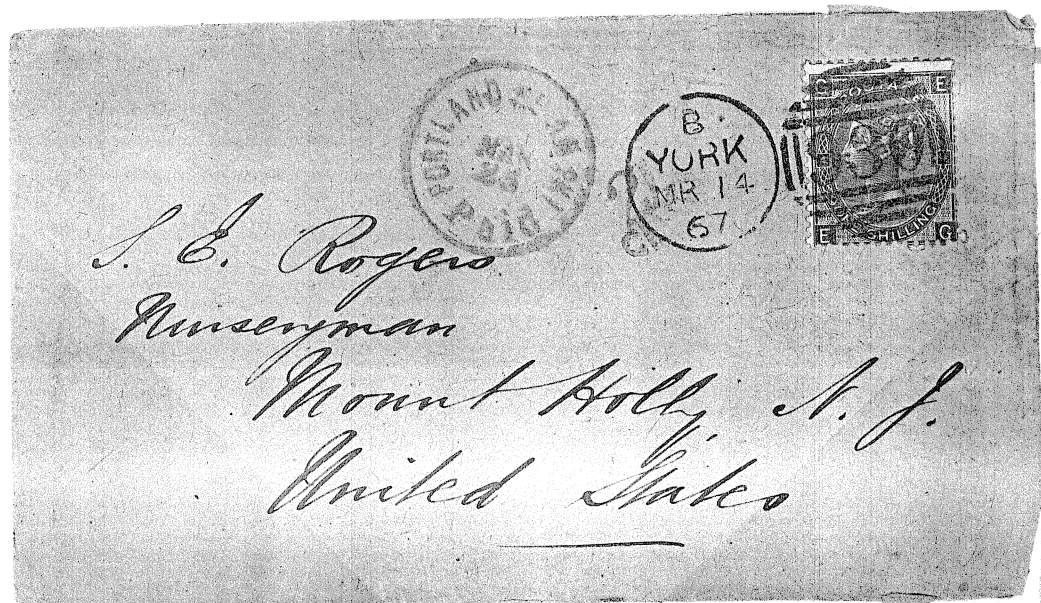 PORTLAND AM. PKT
MAR
Paid
B
YORK
MR 14
67
G E
POSTAGE
ONE SHILLING
E G
S. E. Rogers
Nurseryman
Mount Holly, N. J.
United States